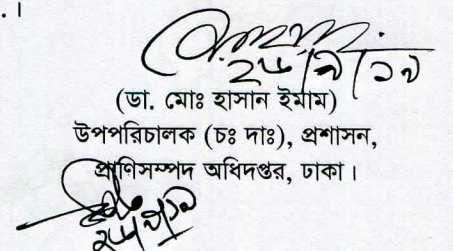 . ।
২৬/৯/১৯
(ডা. মোঃ হাসান ইমাম)
উপপরিচালক (চঃ দাঃ), প্রশাসন,
প্রাণিসম্পদ অধিদপ্তর, ঢাকা।
২৬/৯/১৯